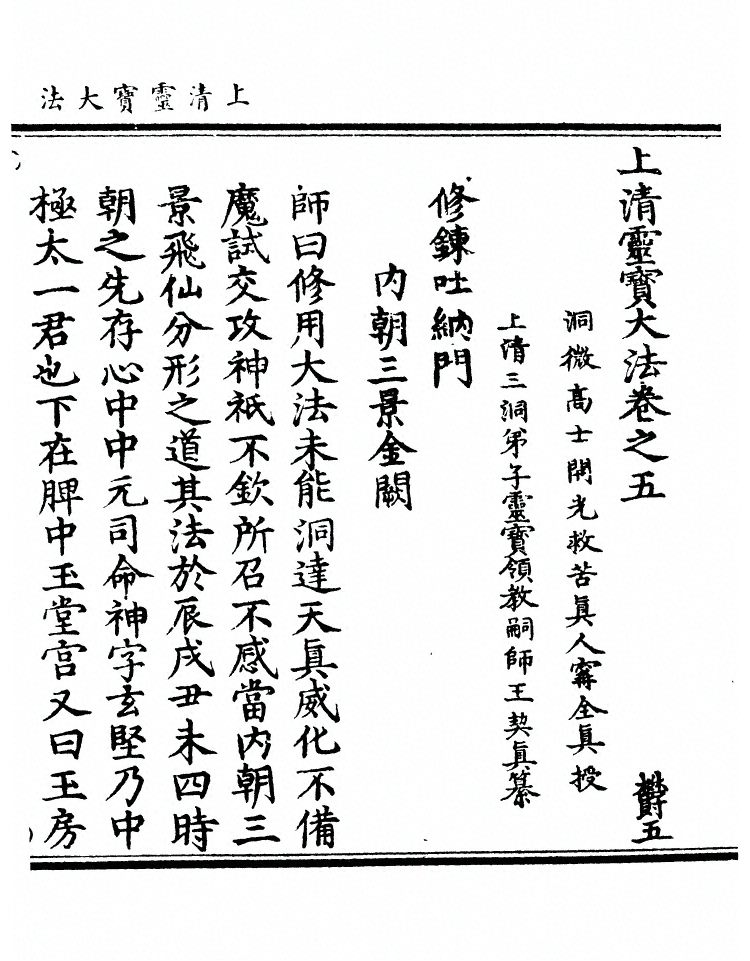 上清靈寶大法
上清靈寶大法卷之五 鬱五
洞微高士開光救苦眞人甯全眞授
上清三洞弟子靈寶領教嗣師王契眞纂
修鍊吐納門
内朝三景金闕
師曰修用大法未能洞達天眞威化不備
魔試交攻神祇不欽所召不感當内朝三
景飛仙分形之道其法於辰戌丑未四時
朝之先存心中中元司命神字玄堅乃中
極太一君也下在脾中玉堂宫又曰玉房